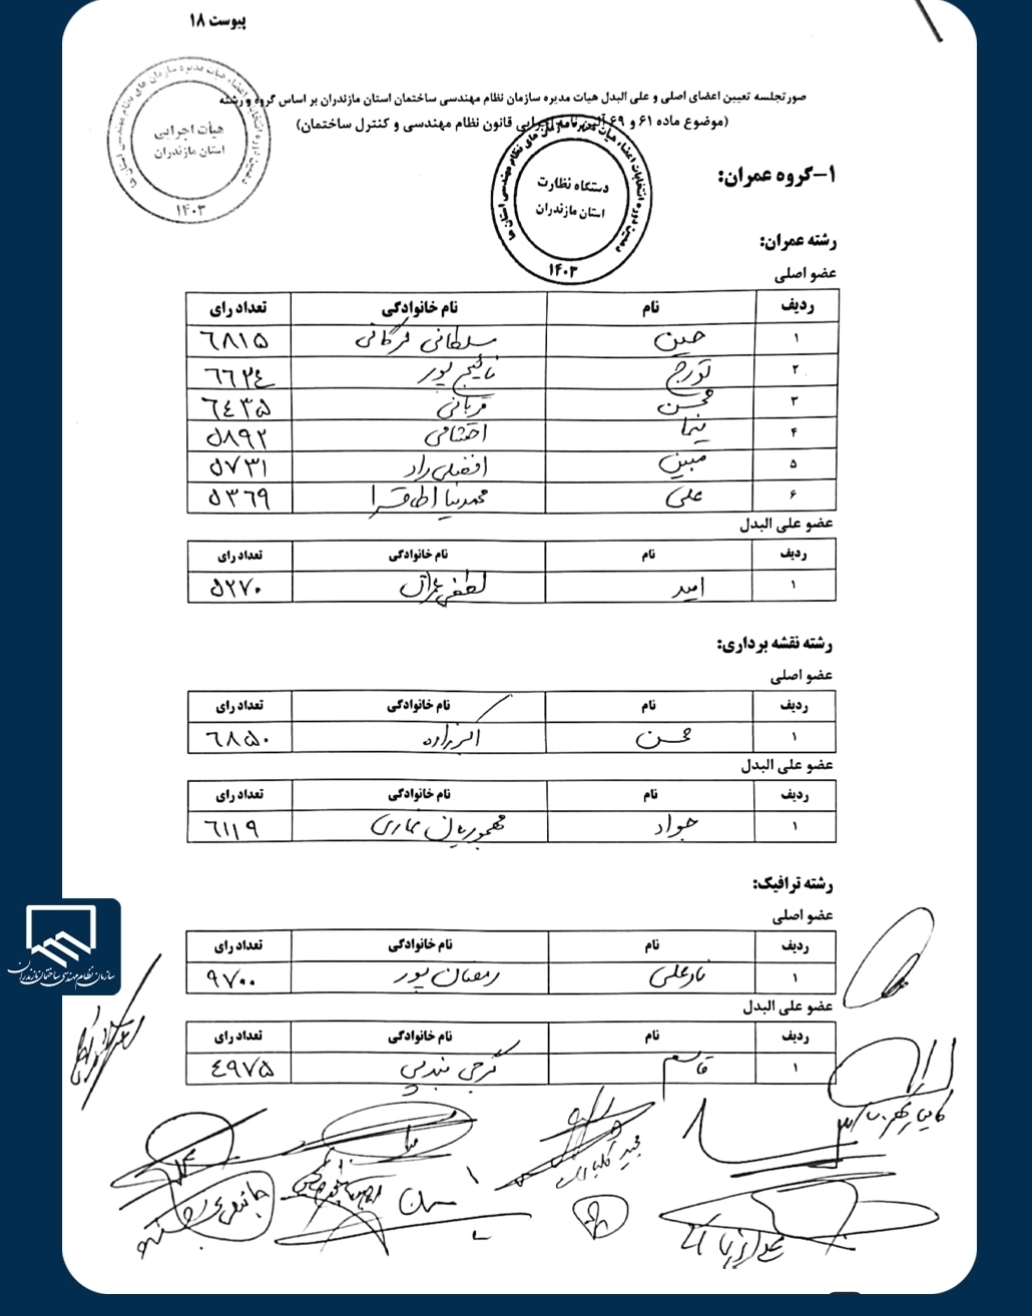 پیوست ۱۸
صورتجلسه تعیین اعضای اصلی و علی البدل هیات مدیره سازمان نظام مهندسی ساختمان استان مازندران بر اساس گروه و رشته
(موضوع ماده ۶۱ و ۶۹ آئین نامه اجرایی قانون نظام مهندسی و کنترل ساختمان)
هیأت اجرایی
استان مازندران
۱۴۰۳
دستگاه نظارت
استان مازندران
۱۴۰۳
۱-گروه عمران:
رشته عمران:
عضو اصلی
ردیف نام نام خانوادگی تعداد رای
۱ حسین سلطانی ۶۸۱۵
۲ تورج نائیج پور ۶۶۳۴
۳ محسن قربانی ۶۴۳۵
۴ نیما احتشامی ۵۸۹۲
۵ مبین افضلی راد ۵۷۳۱
۶ علی محمدنیا ۵۳۶۹
عضو علی البدل
ردیف نام نام خانوادگی تعداد رای
۱ امید لطفی ۵۲۷۰
رشته نقشه برداری:
عضو اصلی
ردیف نام نام خانوادگی تعداد رای
۱ محسن اکبرزاده ۶۸۵۰
عضو علی البدل
ردیف نام نام خانوادگی تعداد رای
۱ جواد ۶۱۱۹
رشته ترافیک:
عضو اصلی
ردیف نام نام خانوادگی تعداد رای
۱ نادعلی رمضان پور ۹۷۰۰
عضو علی البدل
ردیف نام نام خانوادگی تعداد رای
۱ قاسم گرجی بندپی ۴۹۷۵
سازمان نظام مهندسی ساختمان مازندران